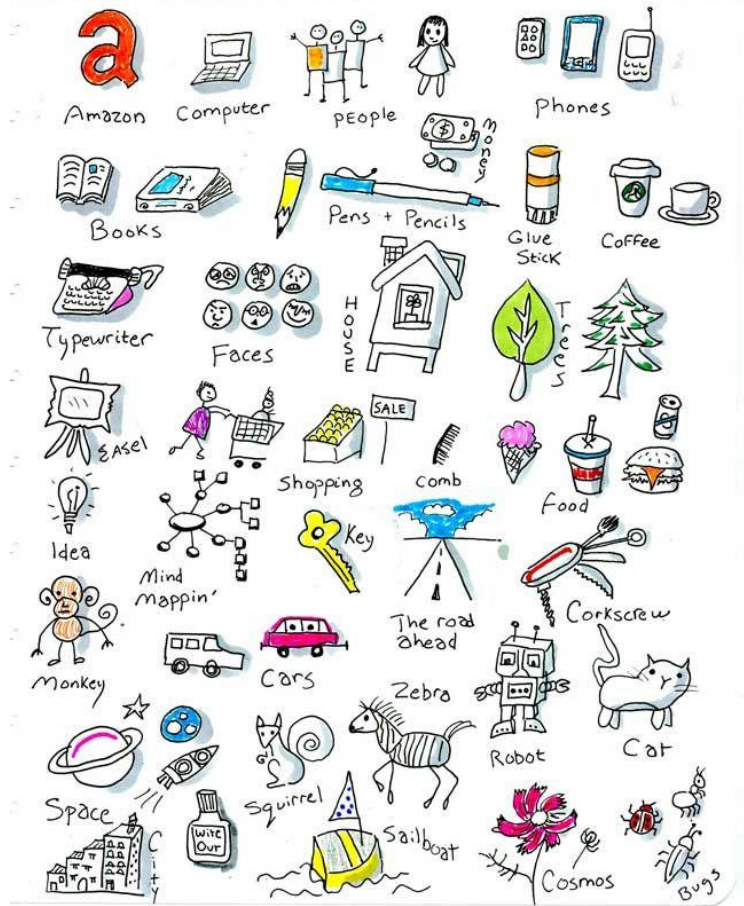 a
Amazon
Computer
PEOPle
Phones
$
Money
Books
Pens + Pencils
Glue
Stick
Coffee
Typewriter
Faces
HOUSE
Trees
EASel
SALE
Shopping
comb
Food
Idea
Mind
Mappin'
Key
The road
ahead
Corkscrew
Monkey
Cars
Zebra
Robot
Cat
Space
Squirrel
Sailboat
City
Wite
Out
Cosmos
Bugs